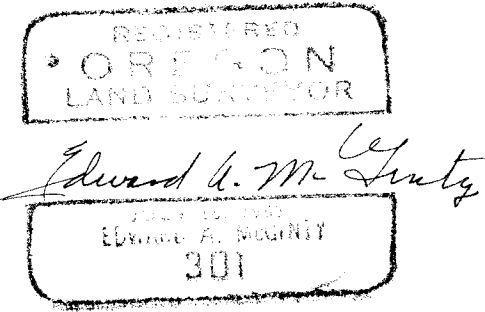 REGISTERED
OREGON
LAND SURVEYOR
Edward A. McGinty
JULY
EDWARD A. McGINTY
301